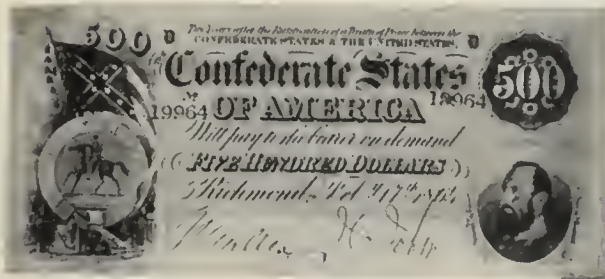 500 D Two Years after the Ratification of a Treaty of Peace between the D
CONFEDERATE STATES & THE UNITED STATES,
Confederate States
500
19964 OF AMERICA 19964
Will pay to the bearer on demand
FIVE HUNDRED DOLLARS
Richmond, Feb 17th